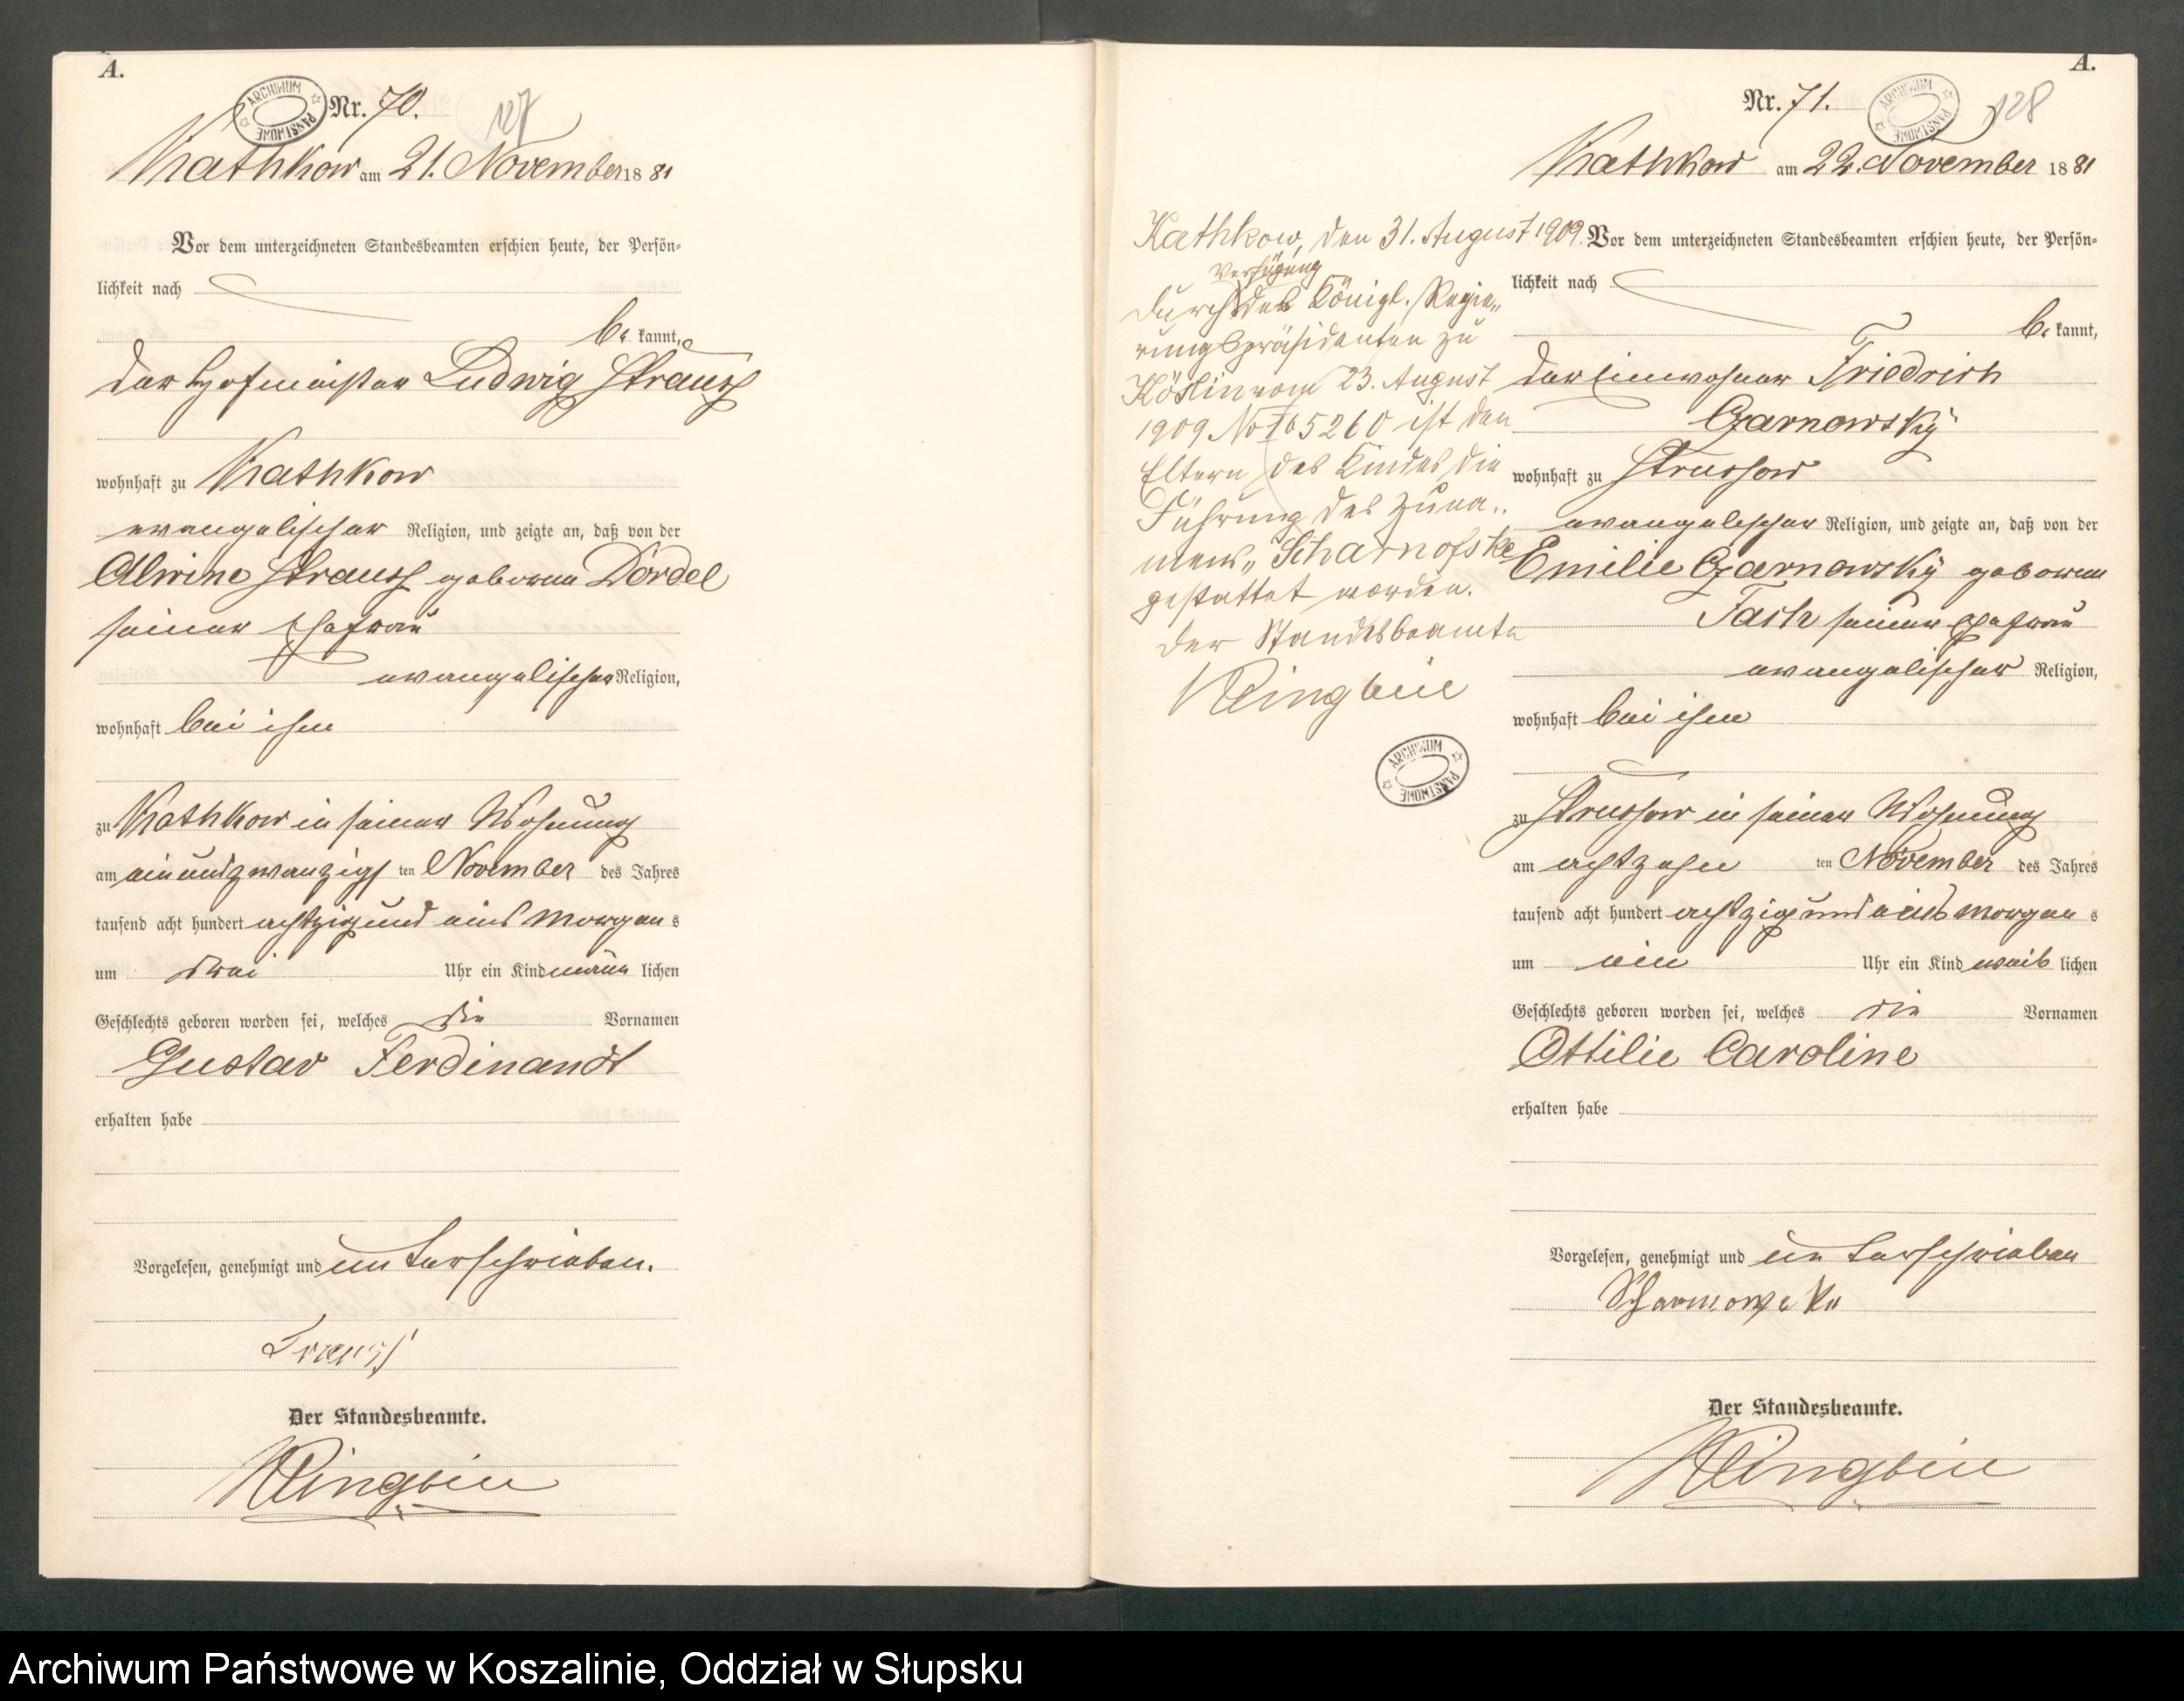 A.
ARCHIWUM PAŃSTWOWE
Nr. 70.
127
Kathkow am 21. November 1881
Vor dem unterzeichneten Standesbeamten erschien heute, der Persön-
lichkeit nach
be kannt,
der Hofmeister Ludwig Strauss
wohnhaft zu Kathkow
evangelischer Religion, und zeigte an, daß von der
Alwine Strauss geborene Dordel
seiner Ehefrau
evangelischer Religion,
wohnhaft bei ihm
zu Kathkow in seiner Wohnung
am einundzwanzigs ten November des Jahres
tausend acht hundert achtzig und eins Morgen s
um drei Uhr ein Kind männ lichen
Geschlechts geboren worden sei, welches die Vornamen
Gustav Ferdinandt
erhalten habe
Vorgelesen, genehmigt und unterschrieben.
Der Standesbeamte.
Klingbeil
A.
Nr. 71.
ARCHIWUM PAŃSTWOWE
128
Kathkow am 22. November 1881
Vor dem unterzeichneten Standesbeamten erschien heute, der Persön-
lichkeit nach
be kannt,
der Einwohner Friedrich
Czarnowsky
wohnhaft zu Strussow
evangelischer Religion, und zeigte an, daß von der
Emilie Czarnowsky geborene
Tash seiner Ehefrau
evangelischer Religion,
wohnhaft bei ihm
zu Strussow in seiner Wohnung
am achtzehn ten November des Jahres
tausend acht hundert achtzig und eins Morgen s
um ein Uhr ein Kind weib lichen
Geschlechts geboren worden sei, welches die Vornamen
Ottilie Caroline
erhalten habe
Vorgelesen, genehmigt und unterschrieben
Der Standesbeamte.
Klingbeil
Kathkow, den 31. August 1909.
Verfügung
Durch des Königl. Regie-
rungspräsidenten zu
Köslin vom 23. August
1909 No 5260 ist den
Eltern des Kindes die
Führung des Zuna-
mens „Scharnofske
gestattet worden.
Der Standesbeamte
Klingbeil
ARCHIWUM PAŃSTWOWE
Archiwum Państwowe w Koszalinie, Oddział w Słupsku